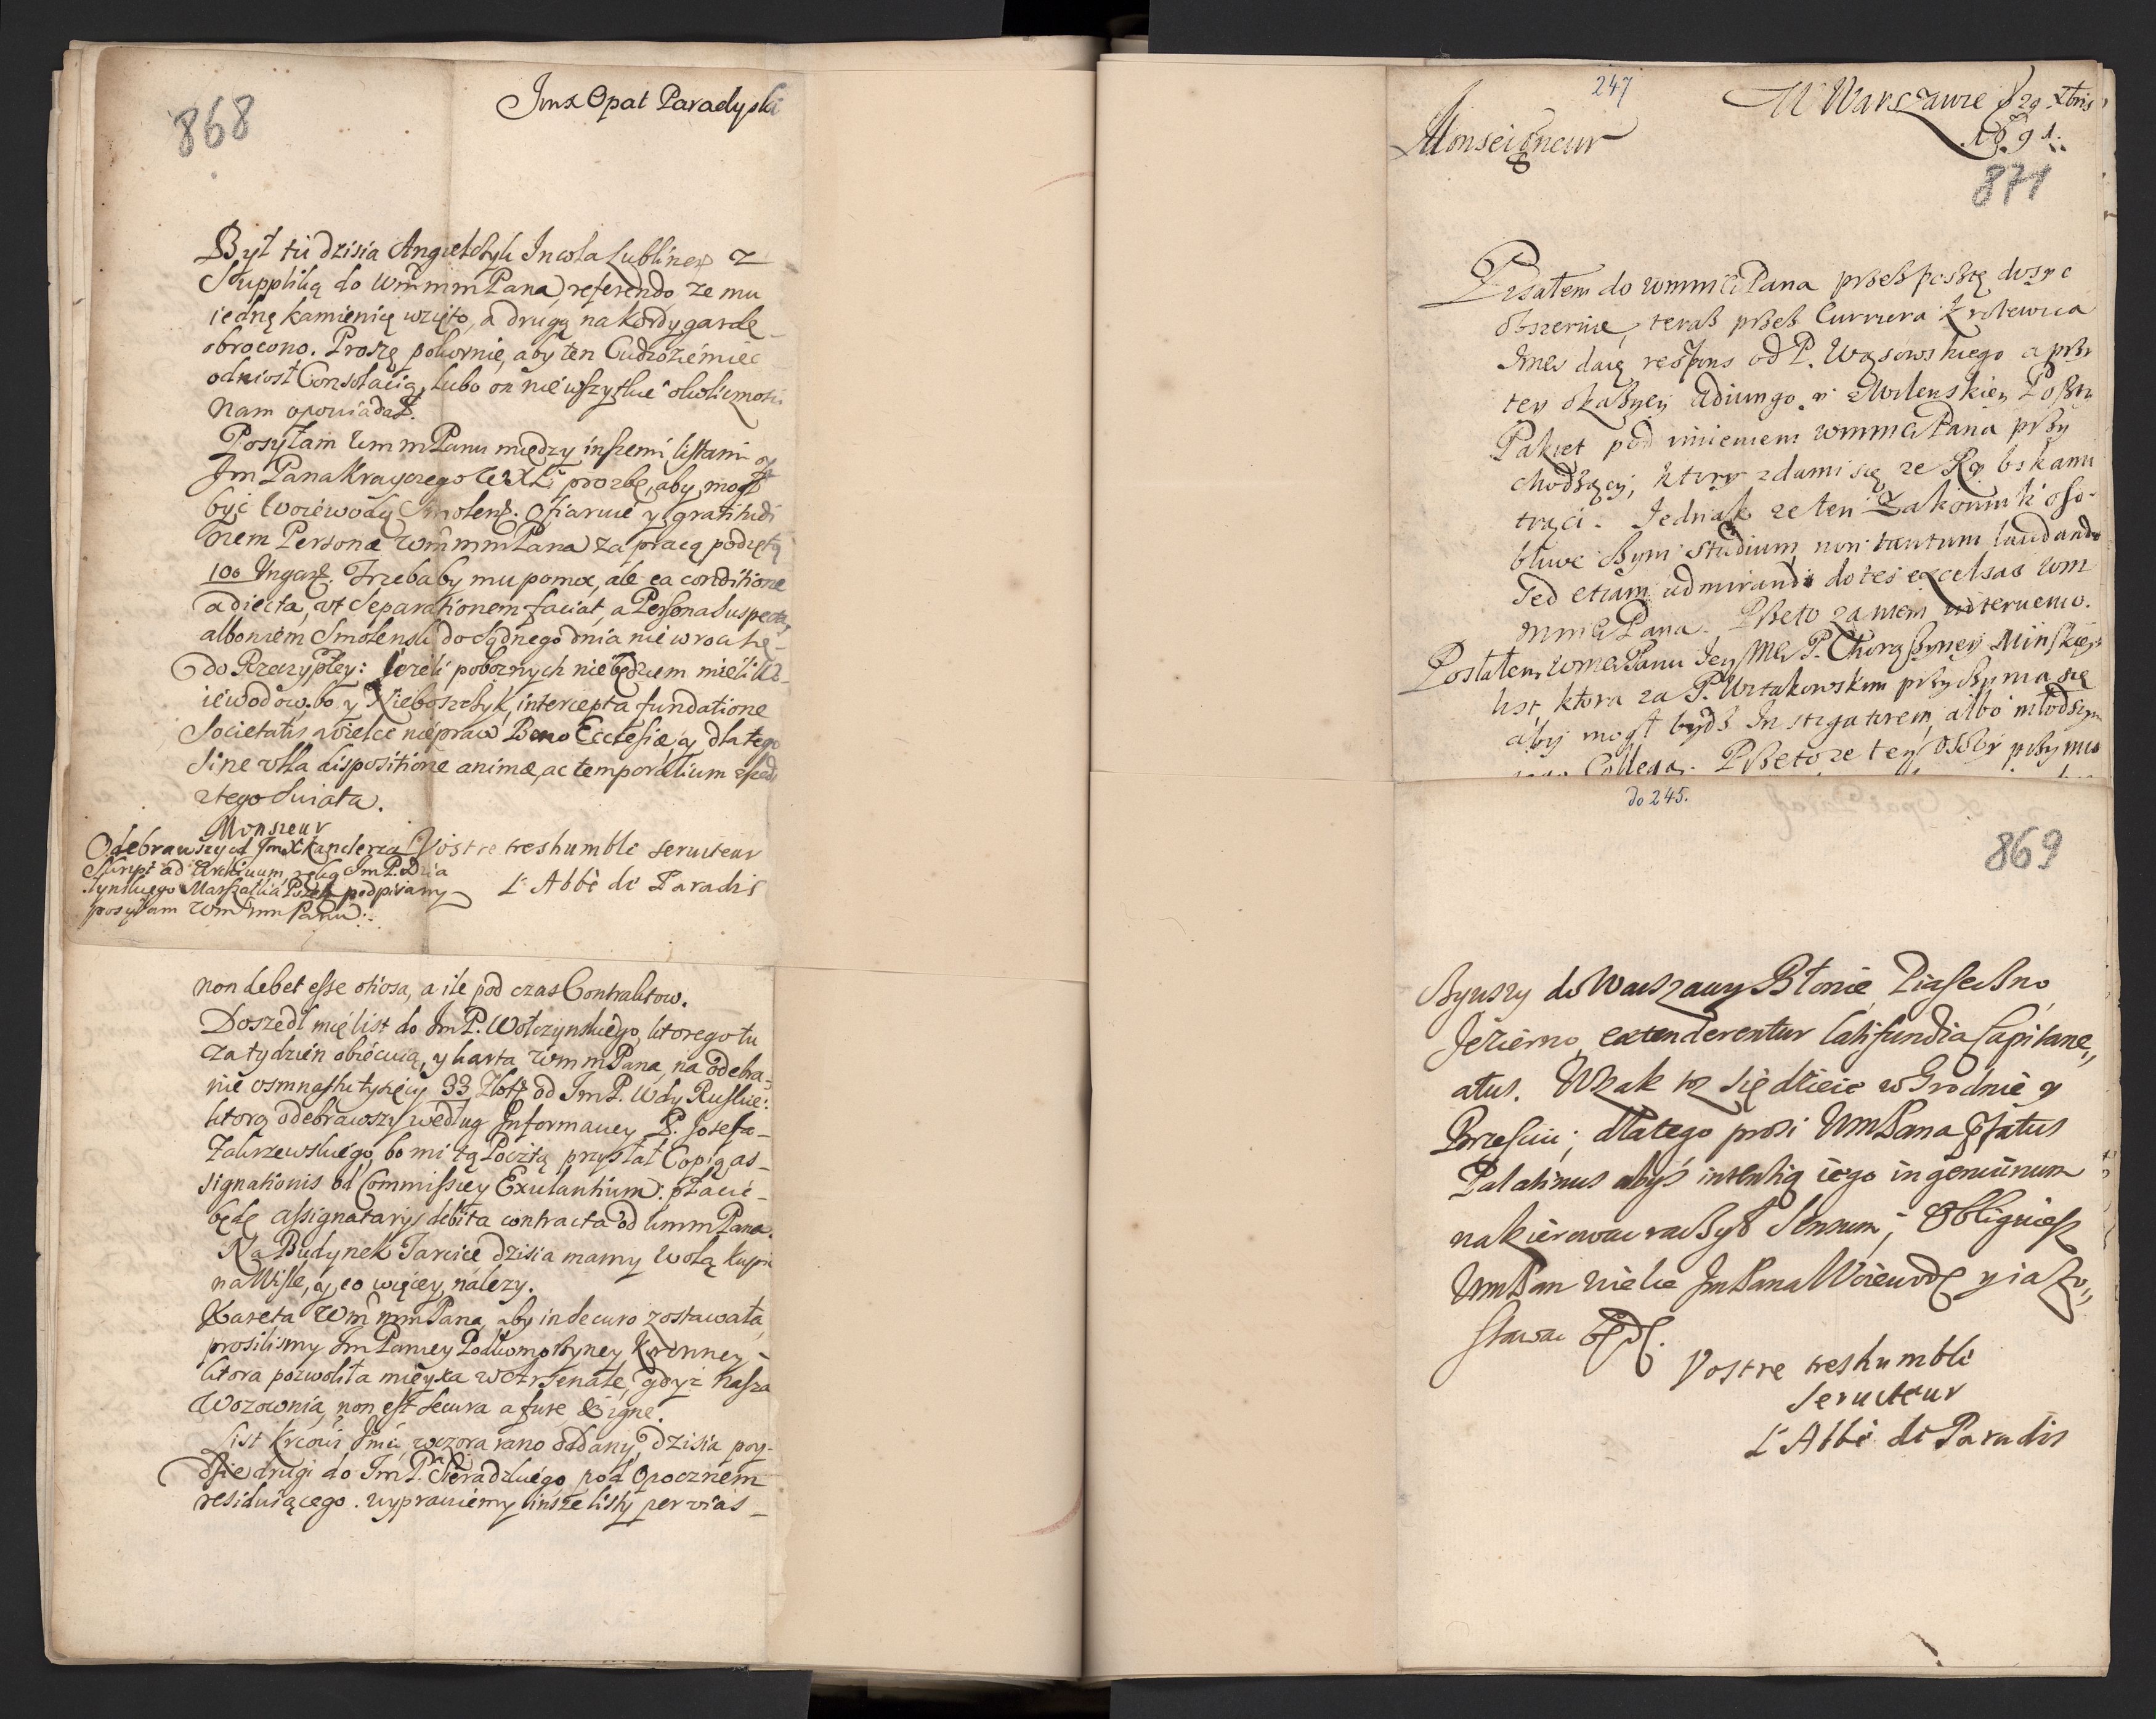 868
Jmx Opat Paradyski
Był tu dzisia Angielczyk Incola Lublinen z
Supplilką do WmmmPana, referendo, ze mu
iednę kamienicę wzięto, a drugą na kordygardę
obrocono. Proszę pokornie, aby ten Cudzoziemiec
odniosł Consolacią, lubo on nie wszytkie okolicznosci
nam opowiadał.
Posyłam WmmPanu między inszemi listami y
Jm Pana Krayczego WXLi prozbę, aby mogł
być Woiewodą Smolens. Ofiaruie y gratitudi
nem Personæ WmmmPana za pracą podiętą
100 Ungar. Trzebaby mu pomoc, ale ea conditione
adiecta, ut separationem faciat, a Persona suspecta,
albowiem Smolensk do sądnego dnia nie wroci się
do Rzeczyptey: Jezeli poboznych nie będziem mieli Wo-
iewodow, bo y Nieboszczyk, intercepta fundatione
Societatis wielce niepraw Bono Ecclesiæ, y dlatego
sine ulla dispositione animæ, ac temporalium zszedł
z tego swiata.
Monsieur
Vostre treshumble seruiteur
L'Abbè de Paradis
Odebrawszy od Jmx Kanclerza
Skript ad Archiuum, ręką JmP. Dzia
łynskiego Marszałka Posels. podpisany
posyłam WmmmPanu.
non debet esse otiosa, a ile pod czas Contraktow.
Doszedł mię list do JmP. Wołczynskiego, ktorego tu
za tydzien obiecuią, y karta WmmmPana, na odebra-
nie osmnastu tysięcy 33 Złot. od JmP. Wdy Ruskie:
ktorą odebrawszy według Informacyey P. Josefa
Zakrzewskiego, bo mi tą Pocztą przysłał Copią as-
signationis od Commissiey Exulantium: płacić
będę assignatarijs debita contracta od WmmPana.
Na Budynek Tarcice dzisia mamy wolą kupic
na Wisle, y co więcey nalezy.
Kareta WmmmPana, aby in securo zostawała,
prosilismy JmPaniey Podkomorzyney Koronney,
ktora pozwoliła mieysca w Arsenale, gdyz nasza
Wozownia, non est secura a fure & igne.
List Krolowi Jmci, wczora rano oddany, dzisia poy-
dzie drugi do JmP. Sieradzkiego, pod Opocznem
residuiącego. wyprawiemy insze listy per vias
247
W Warszawie d 29 Xbris
1691.
Monseigneur
871
Pisałem do wmmciPana przez posztę dosyc
obszernie, teraz przez Curriera Krolewica
Jmci daię respons od P. Wąsowskiego a przy
tey okaziey adiungo, y z Wilenskiey Poszty
Pakiet pod imieniem wmmciPana przy
chodzący, ktory zda mi się ze Rybskami
trąci. Jednak ze ten Zakonnik oso-
bliwe czyni studium, non tantum laudando
sed etiam admirandi dotes excelsas wm
mmciPana. Przeto za niem interueniuo.
Posłałem wmciPanu Jey Mci P. Chorązyney Minskiey
list, ktora za P. Urtakowskim przyczynia się
aby mogł bydz Instigatorem, albo młodszym
Collegą. Przeto ze tey osoby przyczna
do 245.
869
Bywszy do Warszawy Błonie, Piaseczno,
Jezierno, extenderentur latifundia Capitane,,
atus. Wszak to się dzieie w Grodnie y
Brzesciu; dlatego prosi WmPana Pfatus
Palatinus abys intentią iego in genuinum
nakierowac raczył sensum; Obliguiesz
WmPan wielce JmPana Woiewodę y ia zo,,
stawac będę.
Vostre treshumble
seruiteur
L'Abbè de Paradis